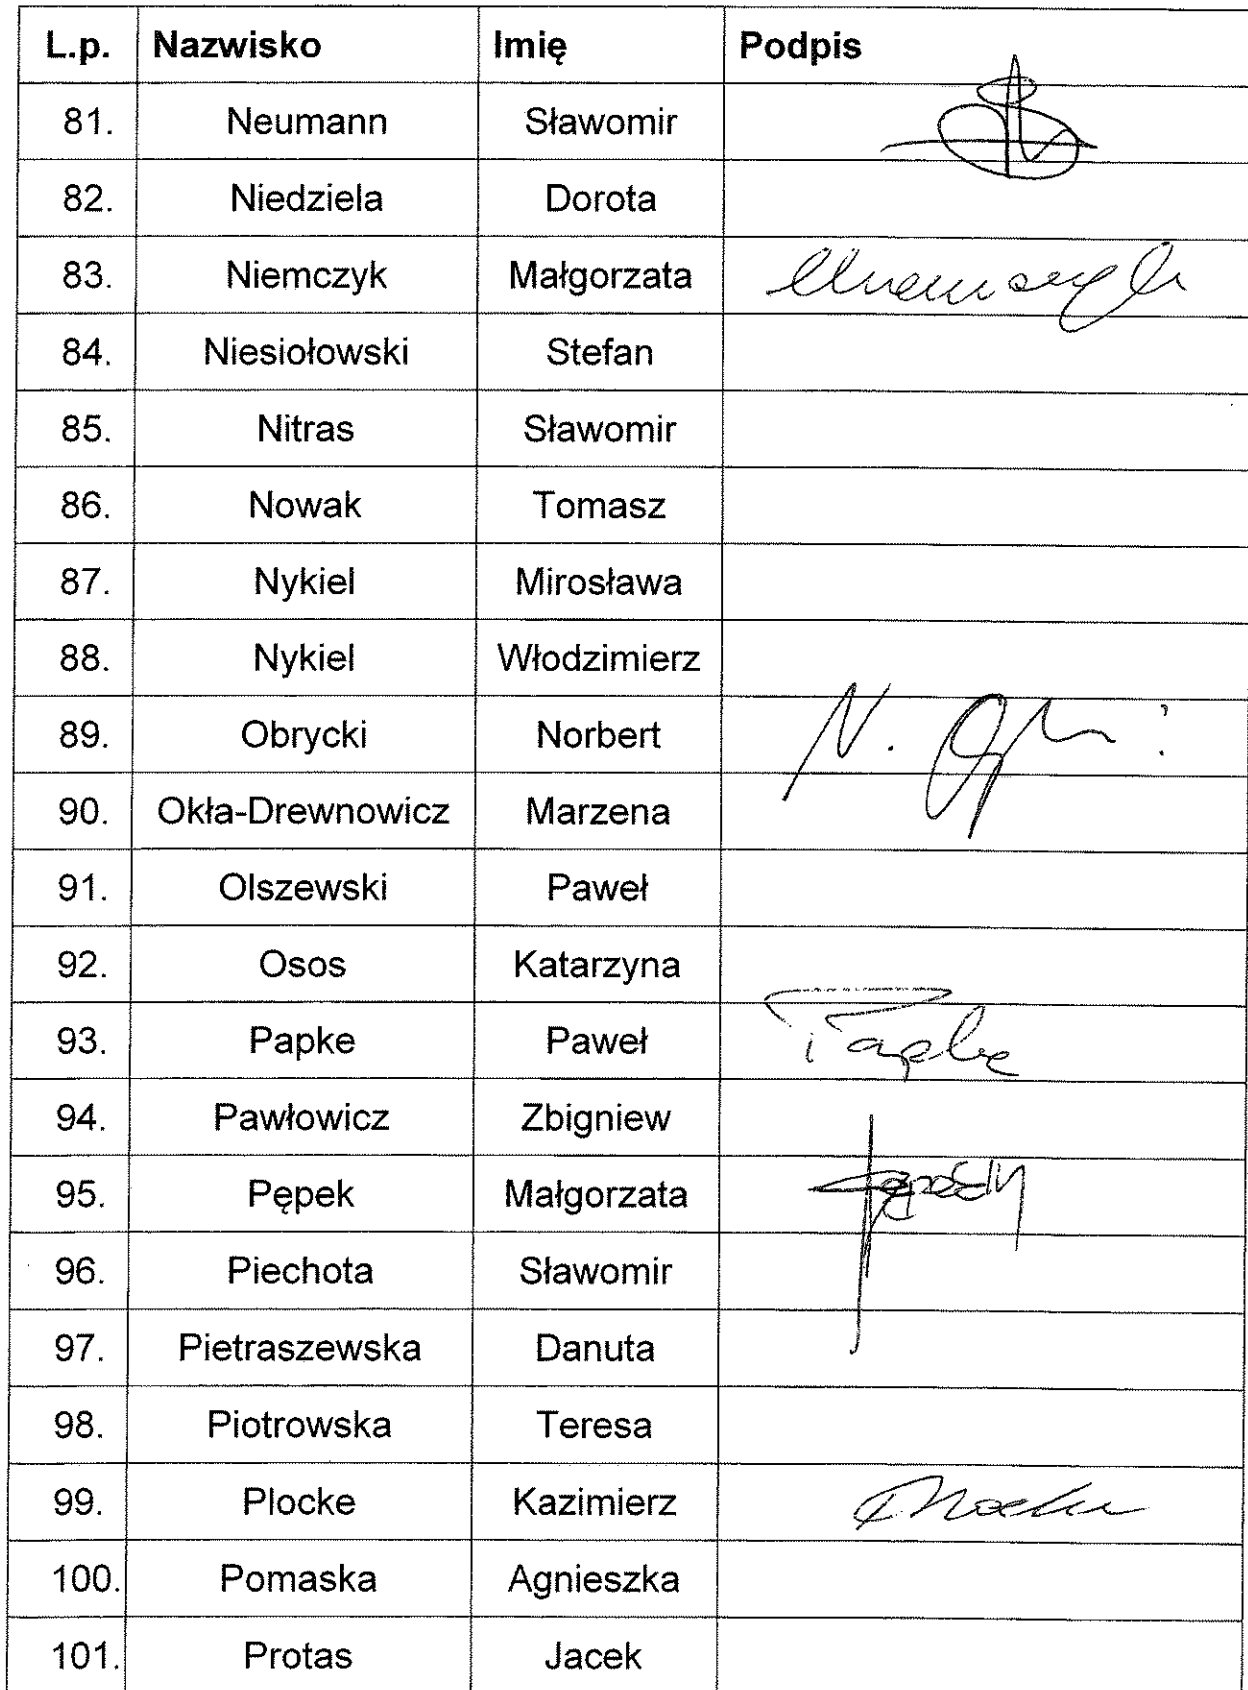 L.p. Nazwisko Imię Podpis
81. Neumann Sławomir
82. Niedziela Dorota
83. Niemczyk Małgorzata
84. Niesiołowski Stefan
85. Nitras Sławomir
86. Nowak Tomasz
87. Nykiel Mirosława
88. Nykiel Włodzimierz
89. Obrycki Norbert N.
90. Okła-Drewnowicz Marzena
91. Olszewski Paweł
92. Osos Katarzyna
93. Papke Paweł Papke
94. Pawłowicz Zbigniew
95. Pępek Małgorzata
96. Piechota Sławomir
97. Pietraszewska Danuta
98. Piotrowska Teresa
99. Plocke Kazimierz
100. Pomaska Agnieszka
101. Protas Jacek